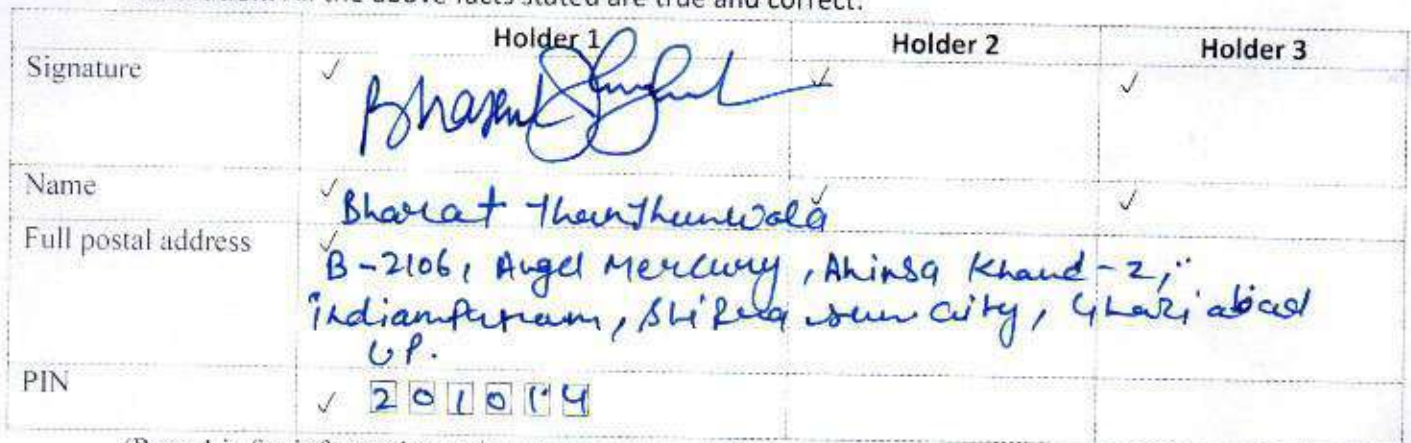 the above facts stated are true and correct.
Holder 1 Holder 2 Holder 3
Signature ✓ Bharat ✓ ✓
Name ✓ Bharat Thunthunwala ✓ ✓
Full postal address ✓ B-2106, Angel Mercury, Ahinsa Khand-2,
Indirapuram, Shipra sun city, Ghaziabad
UP.
PIN ✓ 201014